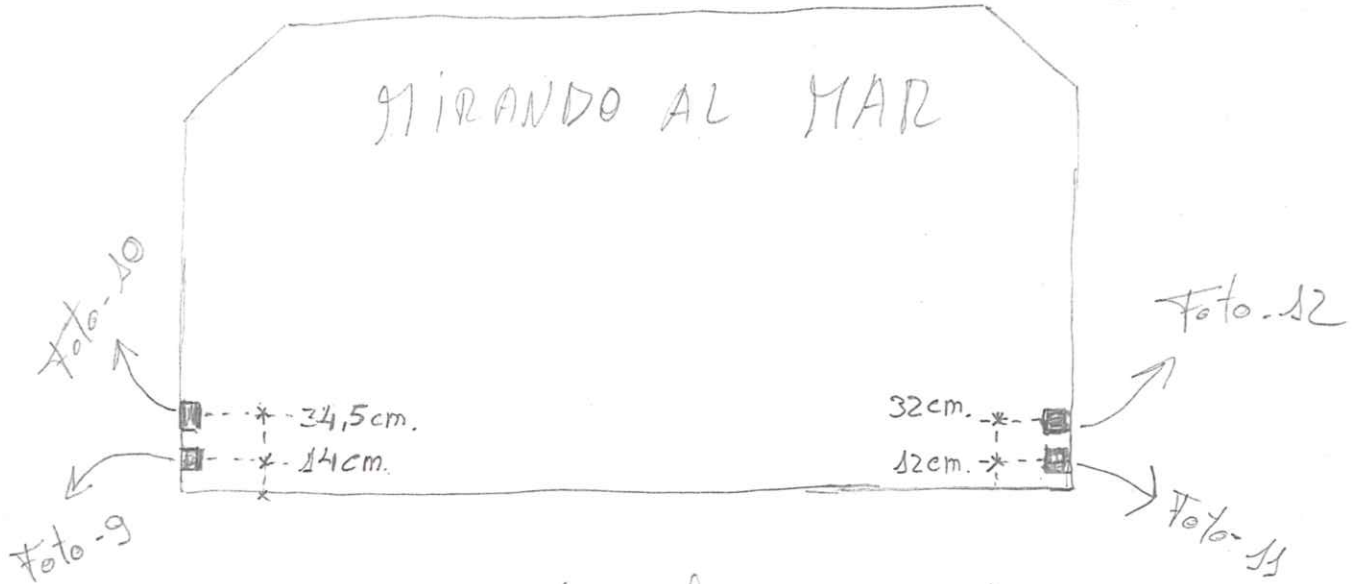 MIRANDO AL MAR
Foto-10
Foto-12
34,5cm.
32cm.
14cm.
12cm.
Foto-9
Foto-11